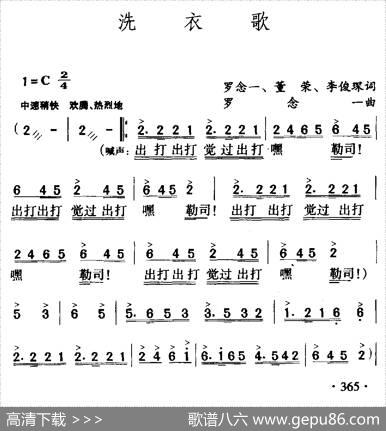 洗 衣 歌
1=C 2/4
罗念一、董 荣、李俊琛词
中速稍快 欢腾、热烈地
罗 念 一曲
(2 2 2. 221 2. 221 2465 645
(喊声: 出打出打 觉过出打 嘿 勒司!
6 45 2 45 645 2 2. 221 2. 221
出打出打 觉过出打 嘿 勒司! 出打出打 觉过出打
2465 645 6 45 2 45 645 2
嘿 勒司! 出打出打 觉过出打 嘿 勒司!)
5 3 5 3 2. 321 2. 321 1. 216 6
2. 221 2. 221 246i 6. i65 4. 542 645 2)
·365·
高清下载 >>>
歌谱八六 www.gepu86.com